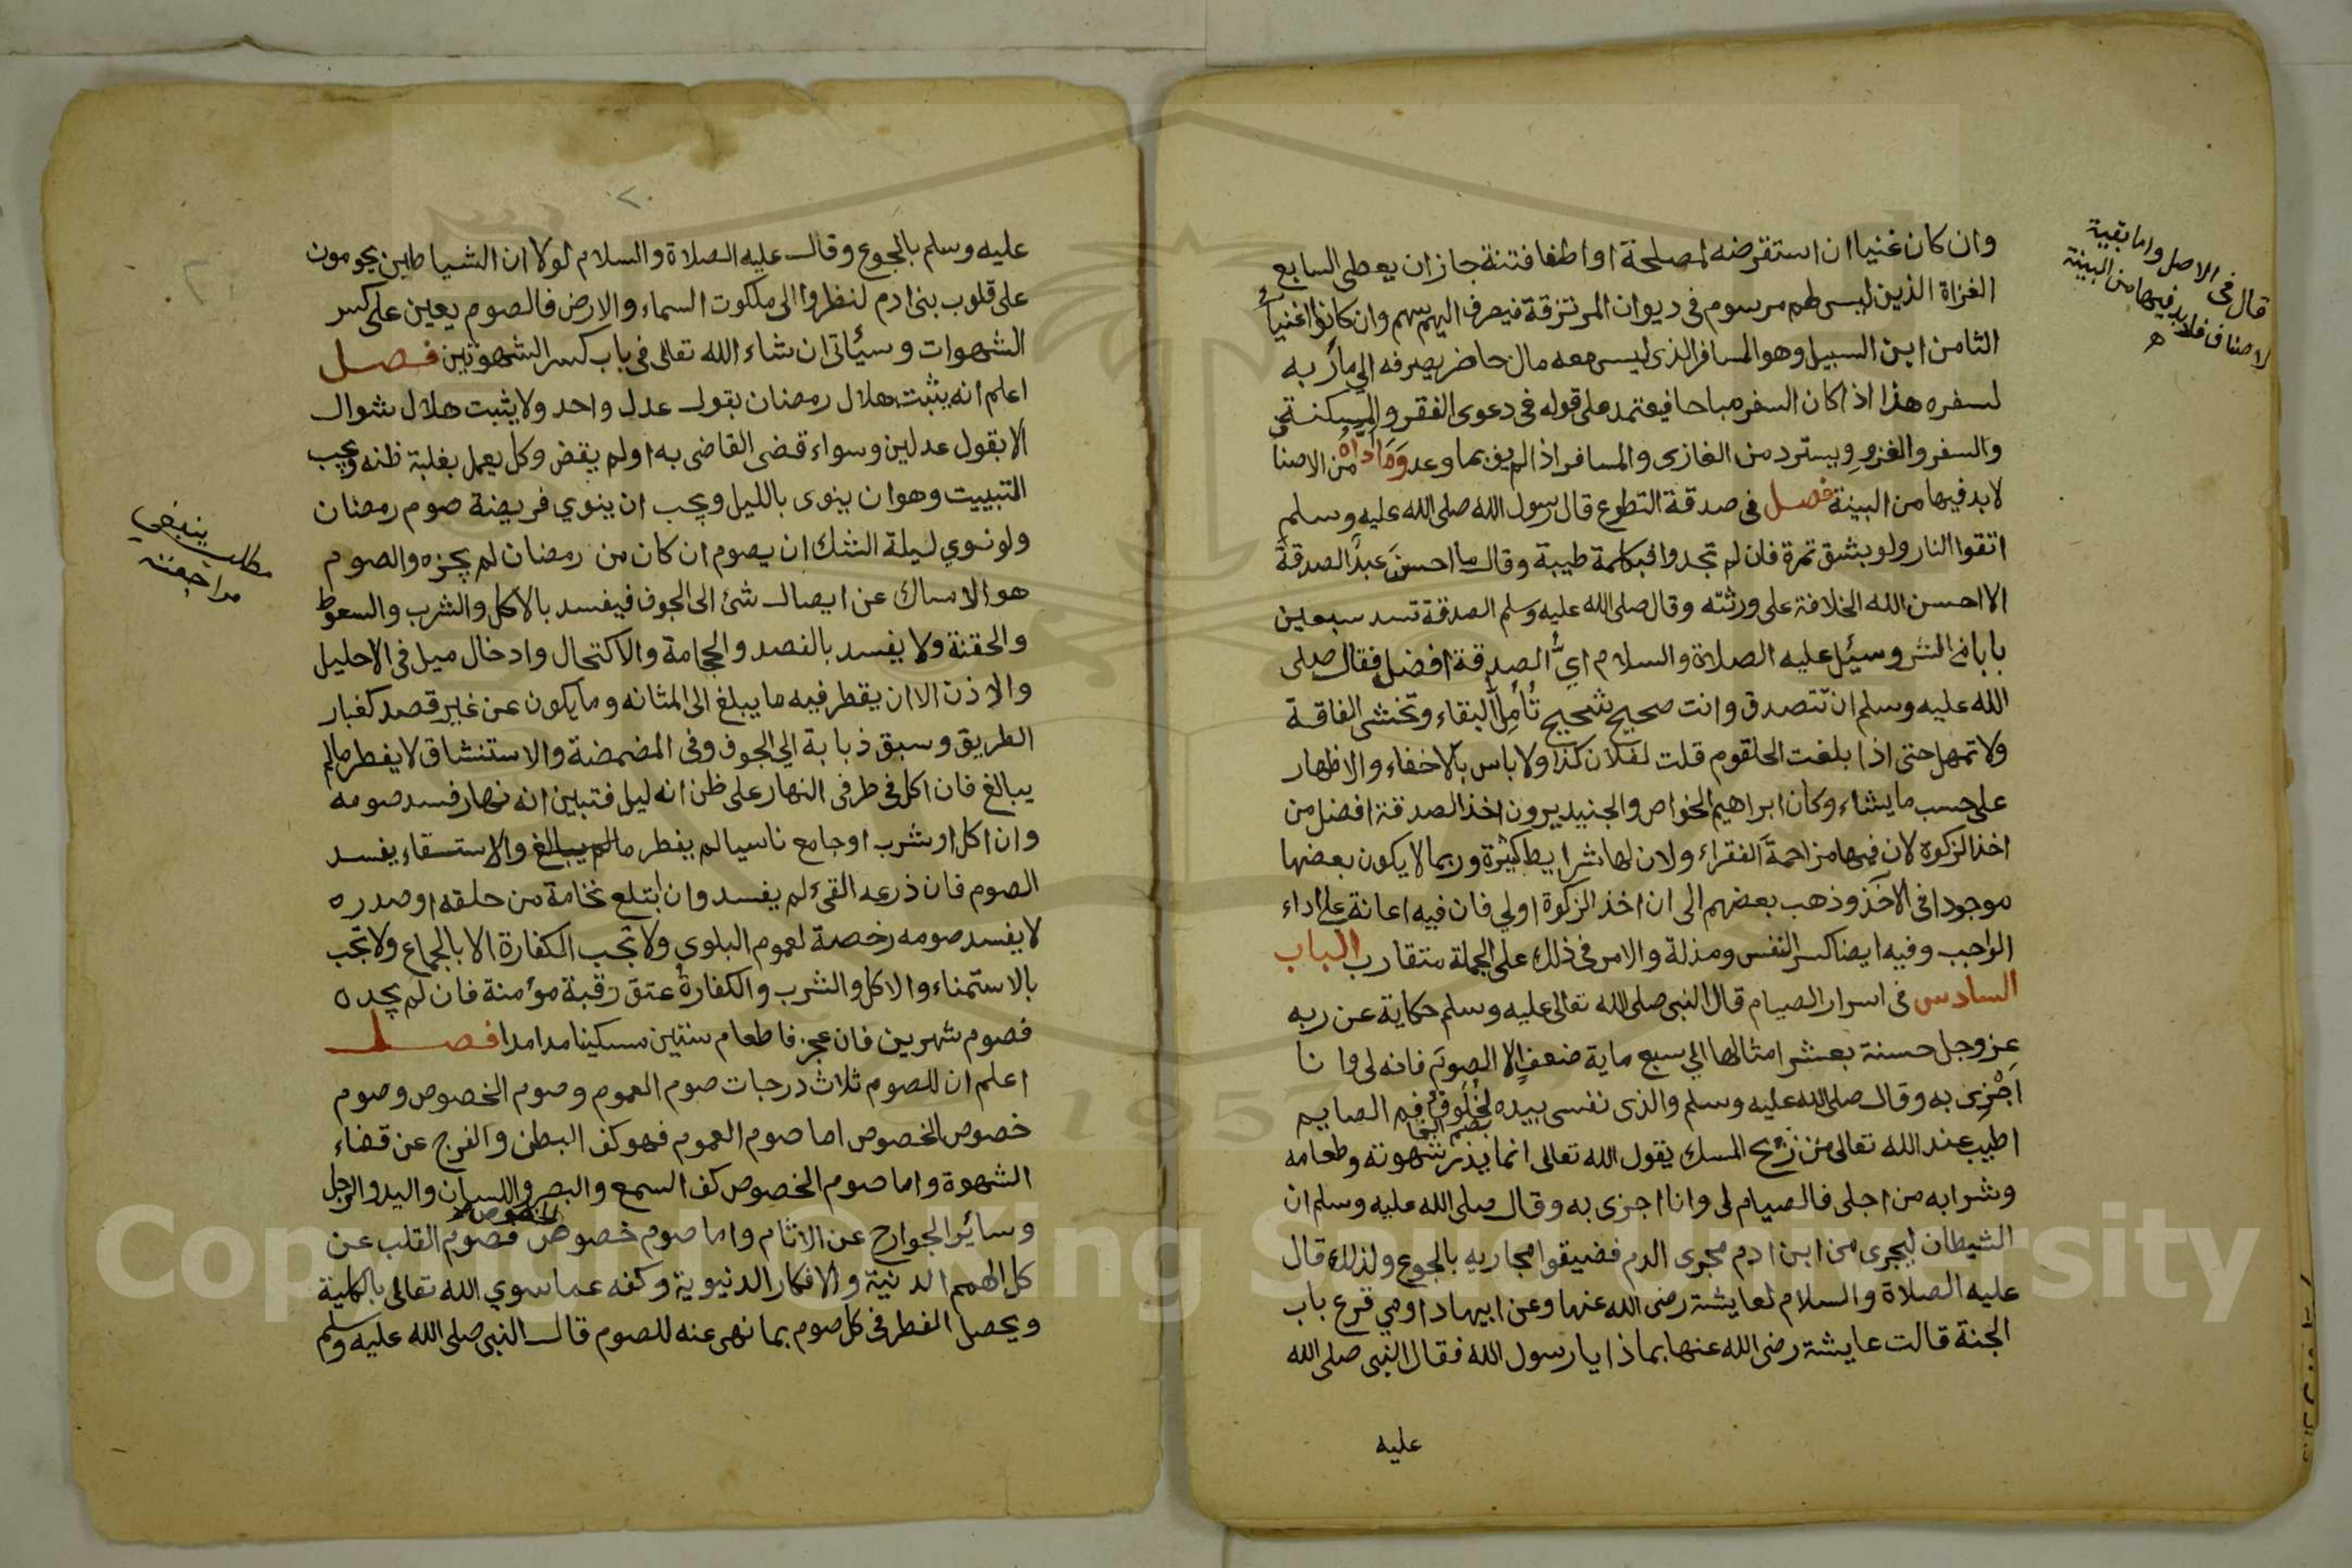 وان كان غنيا ان استقرضه لمصلحة او اطفا فتنة جاز ان يعطى السابع
الغزاة الذين ليس لهم مرسوم في ديوان المرتزقة فيصرف اليهم سهم وان كانوا اغنياء
الثامن ابن السبيل وهو المسافر الذي ليس معه مال حاضر يصرفه الي مآربه
لسفره هذا اذا كان السفر مباحا فيعتمد على قوله في دعوى الفقر والمسكنة
والسفر والغزو ويسترد من الغازى والمسافر اذا لم يف بما وعد وما اداه من الاصنا
لابد فيها من البينة فصل في صدقة التطوع قال رسول الله صلى الله عليه وسلم
اتقوا النار ولو بشق تمرة فان لم تجدوا فبكلمة طيبة وقال ما احسن عبد الصدقة
الا احسن الله الخلافة على ورثته وقال صلى الله عليه وسلم الصدقة تسد سبعين
بابا من الشر وسيئل عليه الصلاة والسلام اي الصدقة افضل فقال صلى
الله عليه وسلم ان تتصدق وانت صحيح شحيح تأمل البقاء وتخشى الفاقة
ولا تمهل حتى اذا بلغت الحلقوم قلت لفلان كذا ولا باس بالاخفاء والاظهار
على حسب ما يشاء وكان ابراهيم الخواص والجنيد يرون اخذ الصدقة افضل من
اخذ الزكوة لان فيها مزاحمة الفقراء ولان لها شرايط كثيرة وربما لا يكون بعضها
موجودا في الآخذ وذهب بعضهم الى ان اخذ الزكوة اولي فان فيه اعانة على اداء
الواجب وفيه ايضا كسر النفس ومذلة والامر في ذلك على الجملة متقارب الباب
السادس في اسرار الصيام قال النبي صلى الله تعالى عليه وسلم حكاية عن ربه
عز وجل حسنة بعشر امثالها الي سبع ماية ضعف الا الصوم فانه لى وانا
اجزى به وقال صلى الله عليه وسلم والذى نفسى بيده لخلوف فم الصايم
بضم الخا
اطيب عند الله تعالى من ريح المسك يقول الله تعالى انما يذر شهوته وطعامه
وشرابه من اجلى فالصيام لى وانا اجزى به وقال صلى الله عليه وسلم ان
الشيطان ليجرى من ابن ادم مجرى الدم فضيقوا مجاريه بالجوع ولذلك قال
عليه الصلاة والسلام لعايشة رضى الله عنها وعن ابيها داومي قرع باب
الجنة قالت عايشة رضى الله عنها بماذا يا رسول الله فقال النبي صلى الله
عليه
قال في الاصل واما بقية
الاصناف فلابد فيها من البينة
ه
٢٠
عليه وسلم بالجوع وقال عليه الصلاة والسلام لولا ان الشياطين يحومون
على قلوب بنى ادم لنظروا الى ملكوت السماء والارض فالصوم يعين على كسر
الشهوات وسيأتى ان شاء الله تعالى في باب كسر الشهوتين فصل
اعلم انه يثبت هلال رمضان بقول عدل واحد ولا يثبت هلال شوال
الا بقول عدلين وسواء قضى القاضى به او لم يقض وكل يعمل بغلبة ظنه ويجب
التبييت وهو ان ينوى بالليل ويجب ان ينوي فريضة صوم رمضان
ولو نوي ليلة الشك ان يصوم ان كان من رمضان لم يجزه والصوم
هو الامساك عن ايصال شئ الى الجوف فيفسد بالاكل والشرب والسعوط
والحقنة ولا يفسد بالفصد والحجامة والاكتحال وادخال ميل في الاحليل
والاذن الا ان يقطر فيه ما يبلغ الى المثانه وما يكون عن غير قصد كغبار
الطريق وسبق ذبابة الي الجوف وفي المضمضة والاستنشاق لا يفطر مالم
يبالغ فان اكل في طرفى النهار على ظن انه ليل فتبين انه نهار فسد صومه
وان اكل او شرب او جامع ناسيا لم يفطر مالم يبالغ والاستسقاء يفسد
الصوم فان ذرعه القئ لم يفسد وان ابتلع نخامة من حلقه او صدره
لا يفسد صومه رخصة لعموم البلوي ولا تجب الكفارة الا بالجماع ولا تجب
بالاستمناء والاكل والشرب والكفارة عتق رقبة مؤمنة فان لم يجده
فصوم شهرين فان عجز فاطعام ستين مسكينا مدا مدا فصل
اعلم ان للصوم ثلاث درجات صوم العموم وصوم الخصوص وصوم
خصوص الخصوص اما صوم العموم فهو كف البطن والفرج عن قضاء
الشهوة واما صوم الخصوص كف السمع والبصر واللسان واليد والرجل
وسائر الجوارح عن الاثام واما صوم خصوص الخصوص فصوم القلب عن
كل الهمم الدنية والافكار الدنيوية وكفه عما سوي الله تعالى بالكلية
ويحصل الفطر في كل صوم بما نهى عنه للصوم قال النبي صلى الله عليه وسلم
مطلب ينبغي
مراجعته
Copyright © King Saud University
1957